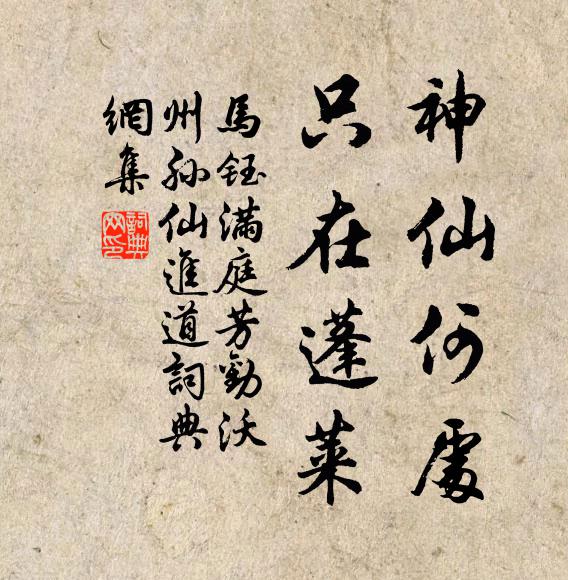 神仙何處
只在蓬萊
馬鈺滿庭芳勸沃
州孙仙進道詞典
網集
詞典网印